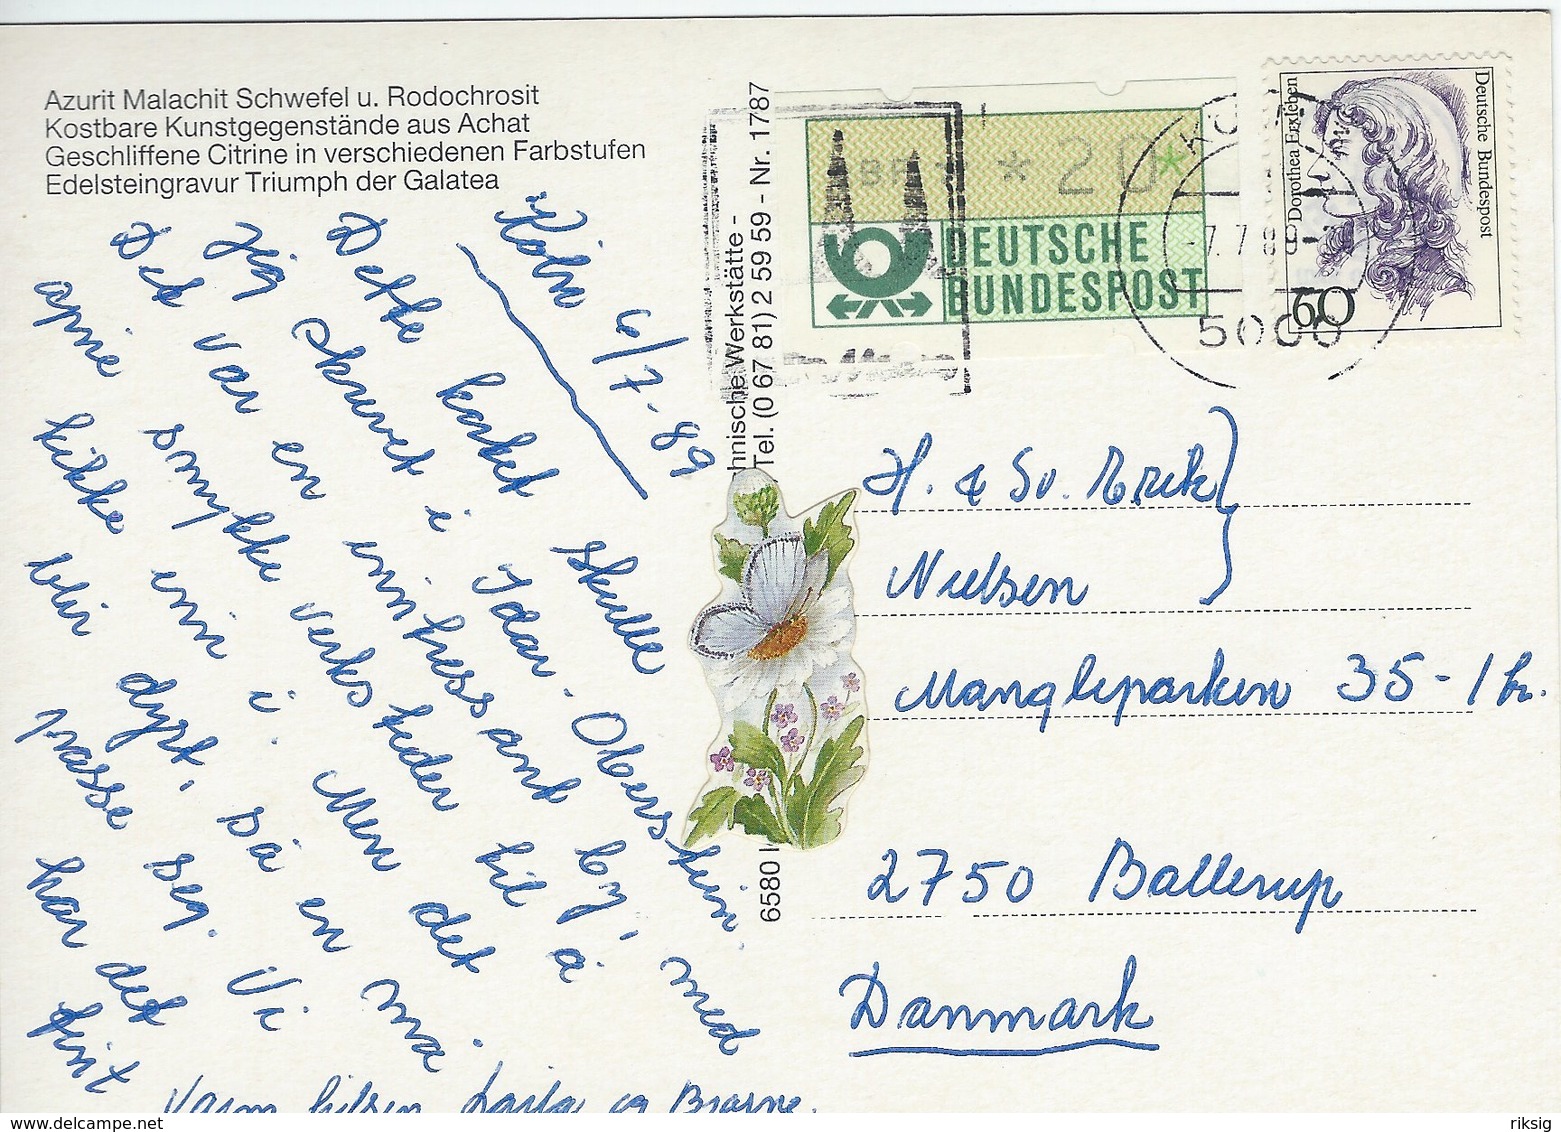 Azurit Malachit Schwefel u. Rodochrosit
Kostbare Kunstgegenstände aus Achat
Geschliffene Citrine in verschiedenen Farbstufen
Edelsteingravur Triumph der Galatea
Köln 6/7-89
Dette kortet skulle
jeg skrevet i Idar-Oberstein.
Det var en interessant by, med
smykke verksteder til å
kikke inn i. Men det
blir dyrt, så en må
passe seg. Vi
har det
fint
Varm hilsen Laila og Bjarne.
hnische Werkstätte -
Tel. (0 67 81) 2 59 59 - Nr. 1787
6580 I
DBP * 20 *
DEUTSCHE
BUNDESPOST
-7.7.8
5000
Dorothea Erxleben
Deutsche Bundespost
60
H. & Sv. Erik
Nielsen
Mangleparken 35-1 h.
2750 Ballerup
Danmark
delcampe.net
riksig